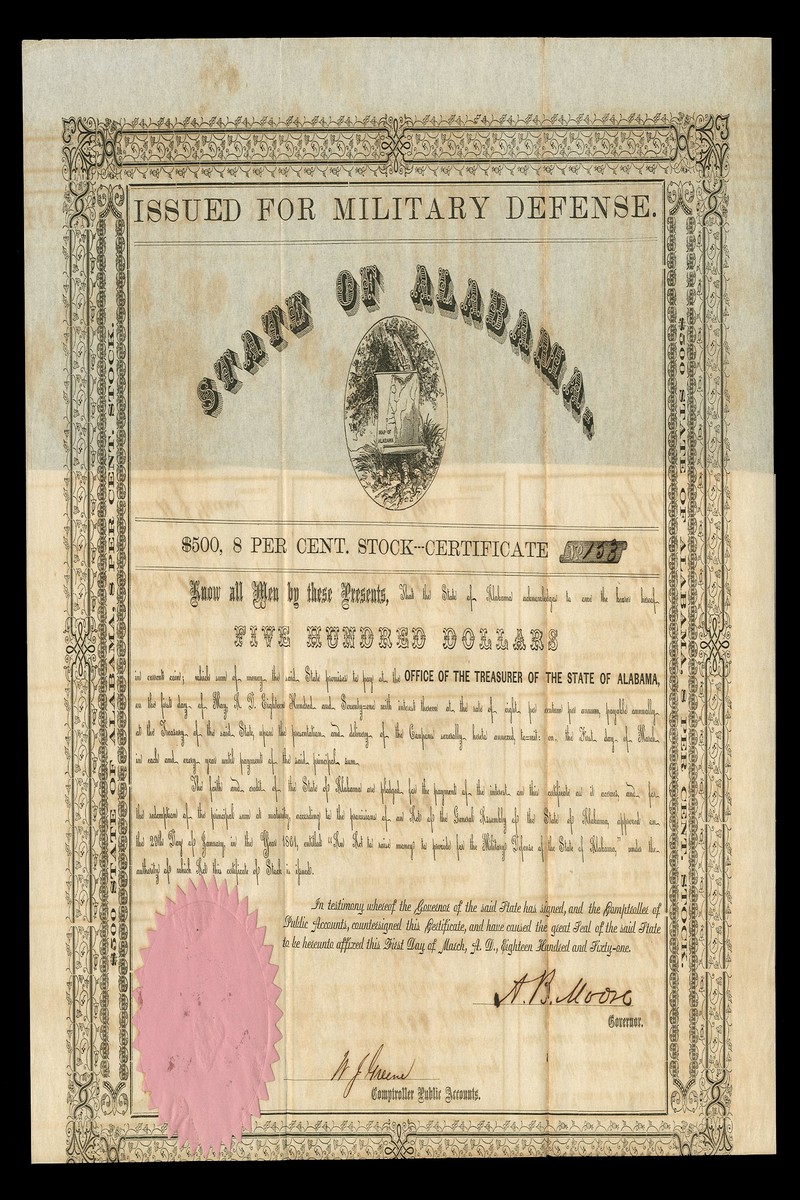 ISSUED FOR MILITARY DEFENSE.
STATE OF ALABAMA,
MAP OF
ALABAMA
$500, 8 PER CENT. STOCK---CERTIFICATE No 153
Know all Men by these Presents, That the State of Alabama acknowledges to owe the bearer hereof
FIVE HUNDRED DOLLARS
in current coin; which sum of money the said State promises to pay at the OFFICE OF THE TREASURER OF THE STATE OF ALABAMA,
on the first day of May, A. D. Eighteen Hundred and Seventy-one with interest thereon at the rate of eight per centum per annum, payable annually
at the Treasury of the said State, upon the presentation and delivery of the Coupons severally hereto annexed, to-wit: on the First day of March
in each and every year until payment of the said principal sum.
The faith and credit of the State of Alabama are pledged for the payment of the interest on this certificate as it accrues, and for
the redemption of the principal sum at maturity, according to the provisions of an Act of the General Assembly of the State of Alabama, approved on
the 29th Day of January, in the Year 1861, entitled "An Act to raise money to provide for the Military Defense of the State of Alabama," under the
authority of which Act this certificate of Stock is issued.
In testimony whereof the Governor of the said State has signed, and the Comptroller of
Public Accounts, countersigned this Certificate, and have caused the great Seal of the said State
to be hereunto affixed this First Day of March, A. D., Eighteen Hundred and Sixty-one.
A. B. Moore
Governor.
W J Greene
Comptroller Public Accounts.
$500 STATE OF ALABAMA, 8 PER CENT. STOCK.
$500 STATE OF ALABAMA, 8 PER CENT. STOCK.